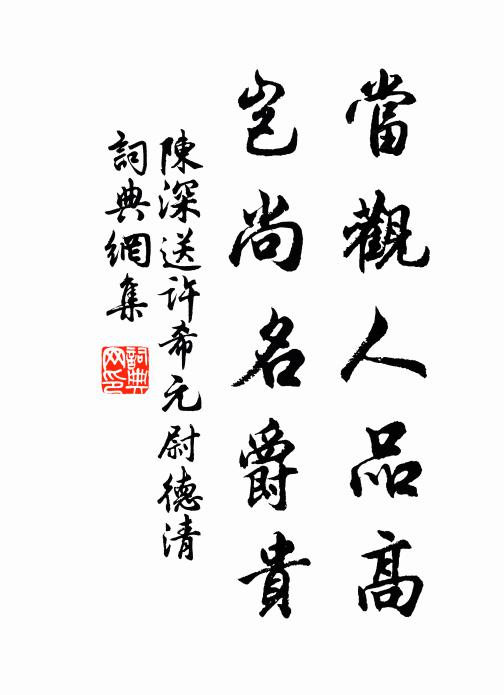 當觀人品高
豈尚名爵貴
陳深送許希元尉德清
詞典網集
詞典
网印